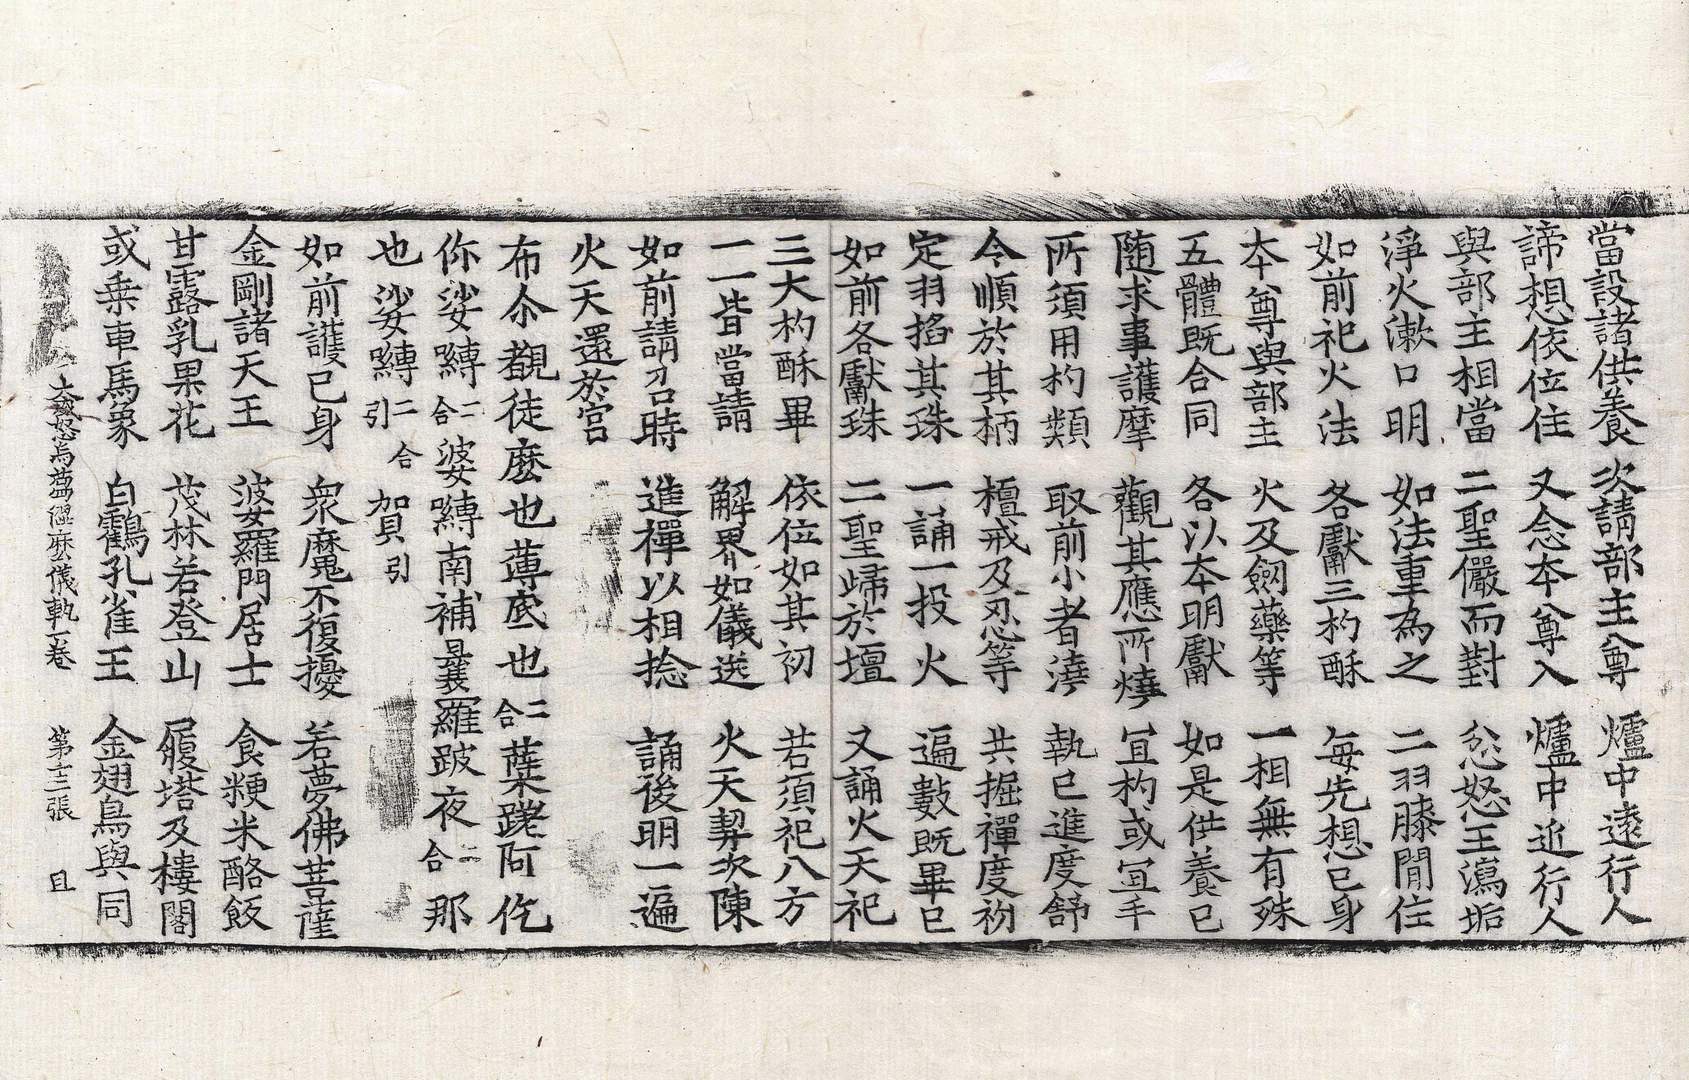 當設諸供養 次請部主尊 爐中遠行人
諦想依位住 又念夲尊入 爐中近行人
與部主相當 二聖儼而對 忿怒王瀉垢
淨火漱口明 如法重為之 二羽膝閒住
如前祀火法 各獻三杓酥 每先想已身
夲尊與部主 火及劔藥等 一相無有殊
五體既合同 各以夲明獻 如是供養已
随求事護摩 觀其應所燒 冝杓或冝手
所須用杓類 取前小者澆 執已進度舒
令順於其柄 檀戒及忍等 共掘禪度礿
定羽掐其珠 一誦一投火 遍數既畢已
如前各獻珠 二聖歸於壇 又誦火天祀
三大杓酥畢 依位如其初 若須祀八方
一一皆當請 解界如儀送 火天契次陳
如前請召時 進禪以相捻 誦後明一遍
火天還於宮
布尒覩徒麽也薄底也二合蘖蹉阿仡
你娑嚩二合婆嚩南補曩羅跛夜二合那
也娑嚩二合引賀引
如前護已身 衆魔不復擾 若夢佛菩薩
金剛諸天王 婆羅門居士 食粳米酪飯
甘露乳果花 茂林若登山 履塔及樓閣
或乗車馬象 白鶴孔雀王 金翅鳥與同
大威怒烏蒭澀麽儀軌一卷 第十三張 且